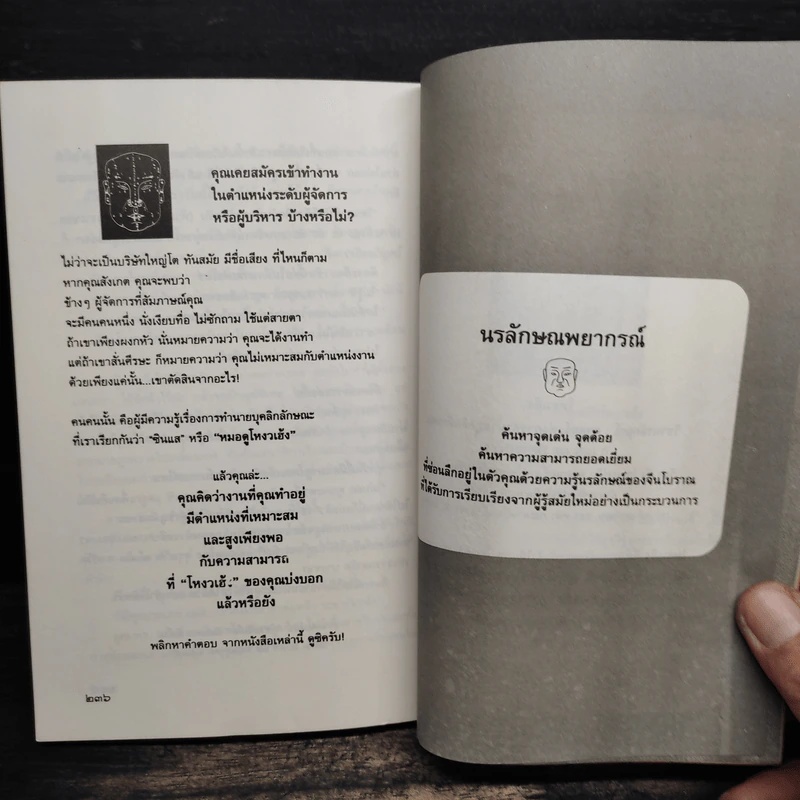 คุณเคยสมัครเข้าทำงาน
ในตำแหน่งระดับผู้จัดการ
หรือผู้บริหาร บ้างหรือไม่?
ไม่ว่าจะเป็นบริษัทใหญ่โต ทันสมัย มีชื่อเสียง ที่ไหนก็ตาม
หากคุณสังเกต คุณจะพบว่า
ข้างๆ ผู้จัดการที่สัมภาษณ์คุณ
จะมีคนคนหนึ่ง นั่งเงียบทื่อ ไม่ซักถาม ใช้แต่สายตา
ถ้าเขาเพียงผงกหัว นั่นหมายความว่า คุณจะได้งานทำ
แต่ถ้าเขาสั่นศีรษะ ก็หมายความว่า คุณไม่เหมาะสมกับตำแหน่งงาน
ด้วยเพียงแค่นั้น...เขาตัดสินจากอะไร!
คนคนนั้น คือผู้มีความรู้เรื่องการทำนายบุคลิกลักษณะ
ที่เราเรียกกันว่า "ซินแส" หรือ "หมอดูโหงวเฮ้ง"
แล้วคุณล่ะ...
คุณคิดว่างานที่คุณทำอยู่
มีตำแหน่งที่เหมาะสม
และสูงเพียงพอ
กับความสามารถ
ที่ "โหงวเฮ้ง" ของคุณบ่งบอก
แล้วหรือยัง
พลิกหาคำตอบ จากหนังสือเหล่านี้ ดูซิครับ!
๒๓๖
นรลักษณพยากรณ์
ค้นหาจุดเด่น จุดด้อย
ค้นหาความสามารถยอดเยี่ยม
ที่ซ่อนลึกอยู่ในตัวคุณด้วยความรู้นรลักษณ์ของจีนโบราณ
ที่ได้รับการเรียบเรียงจากผู้รู้สมัยใหม่อย่างเป็นกระบวนการ